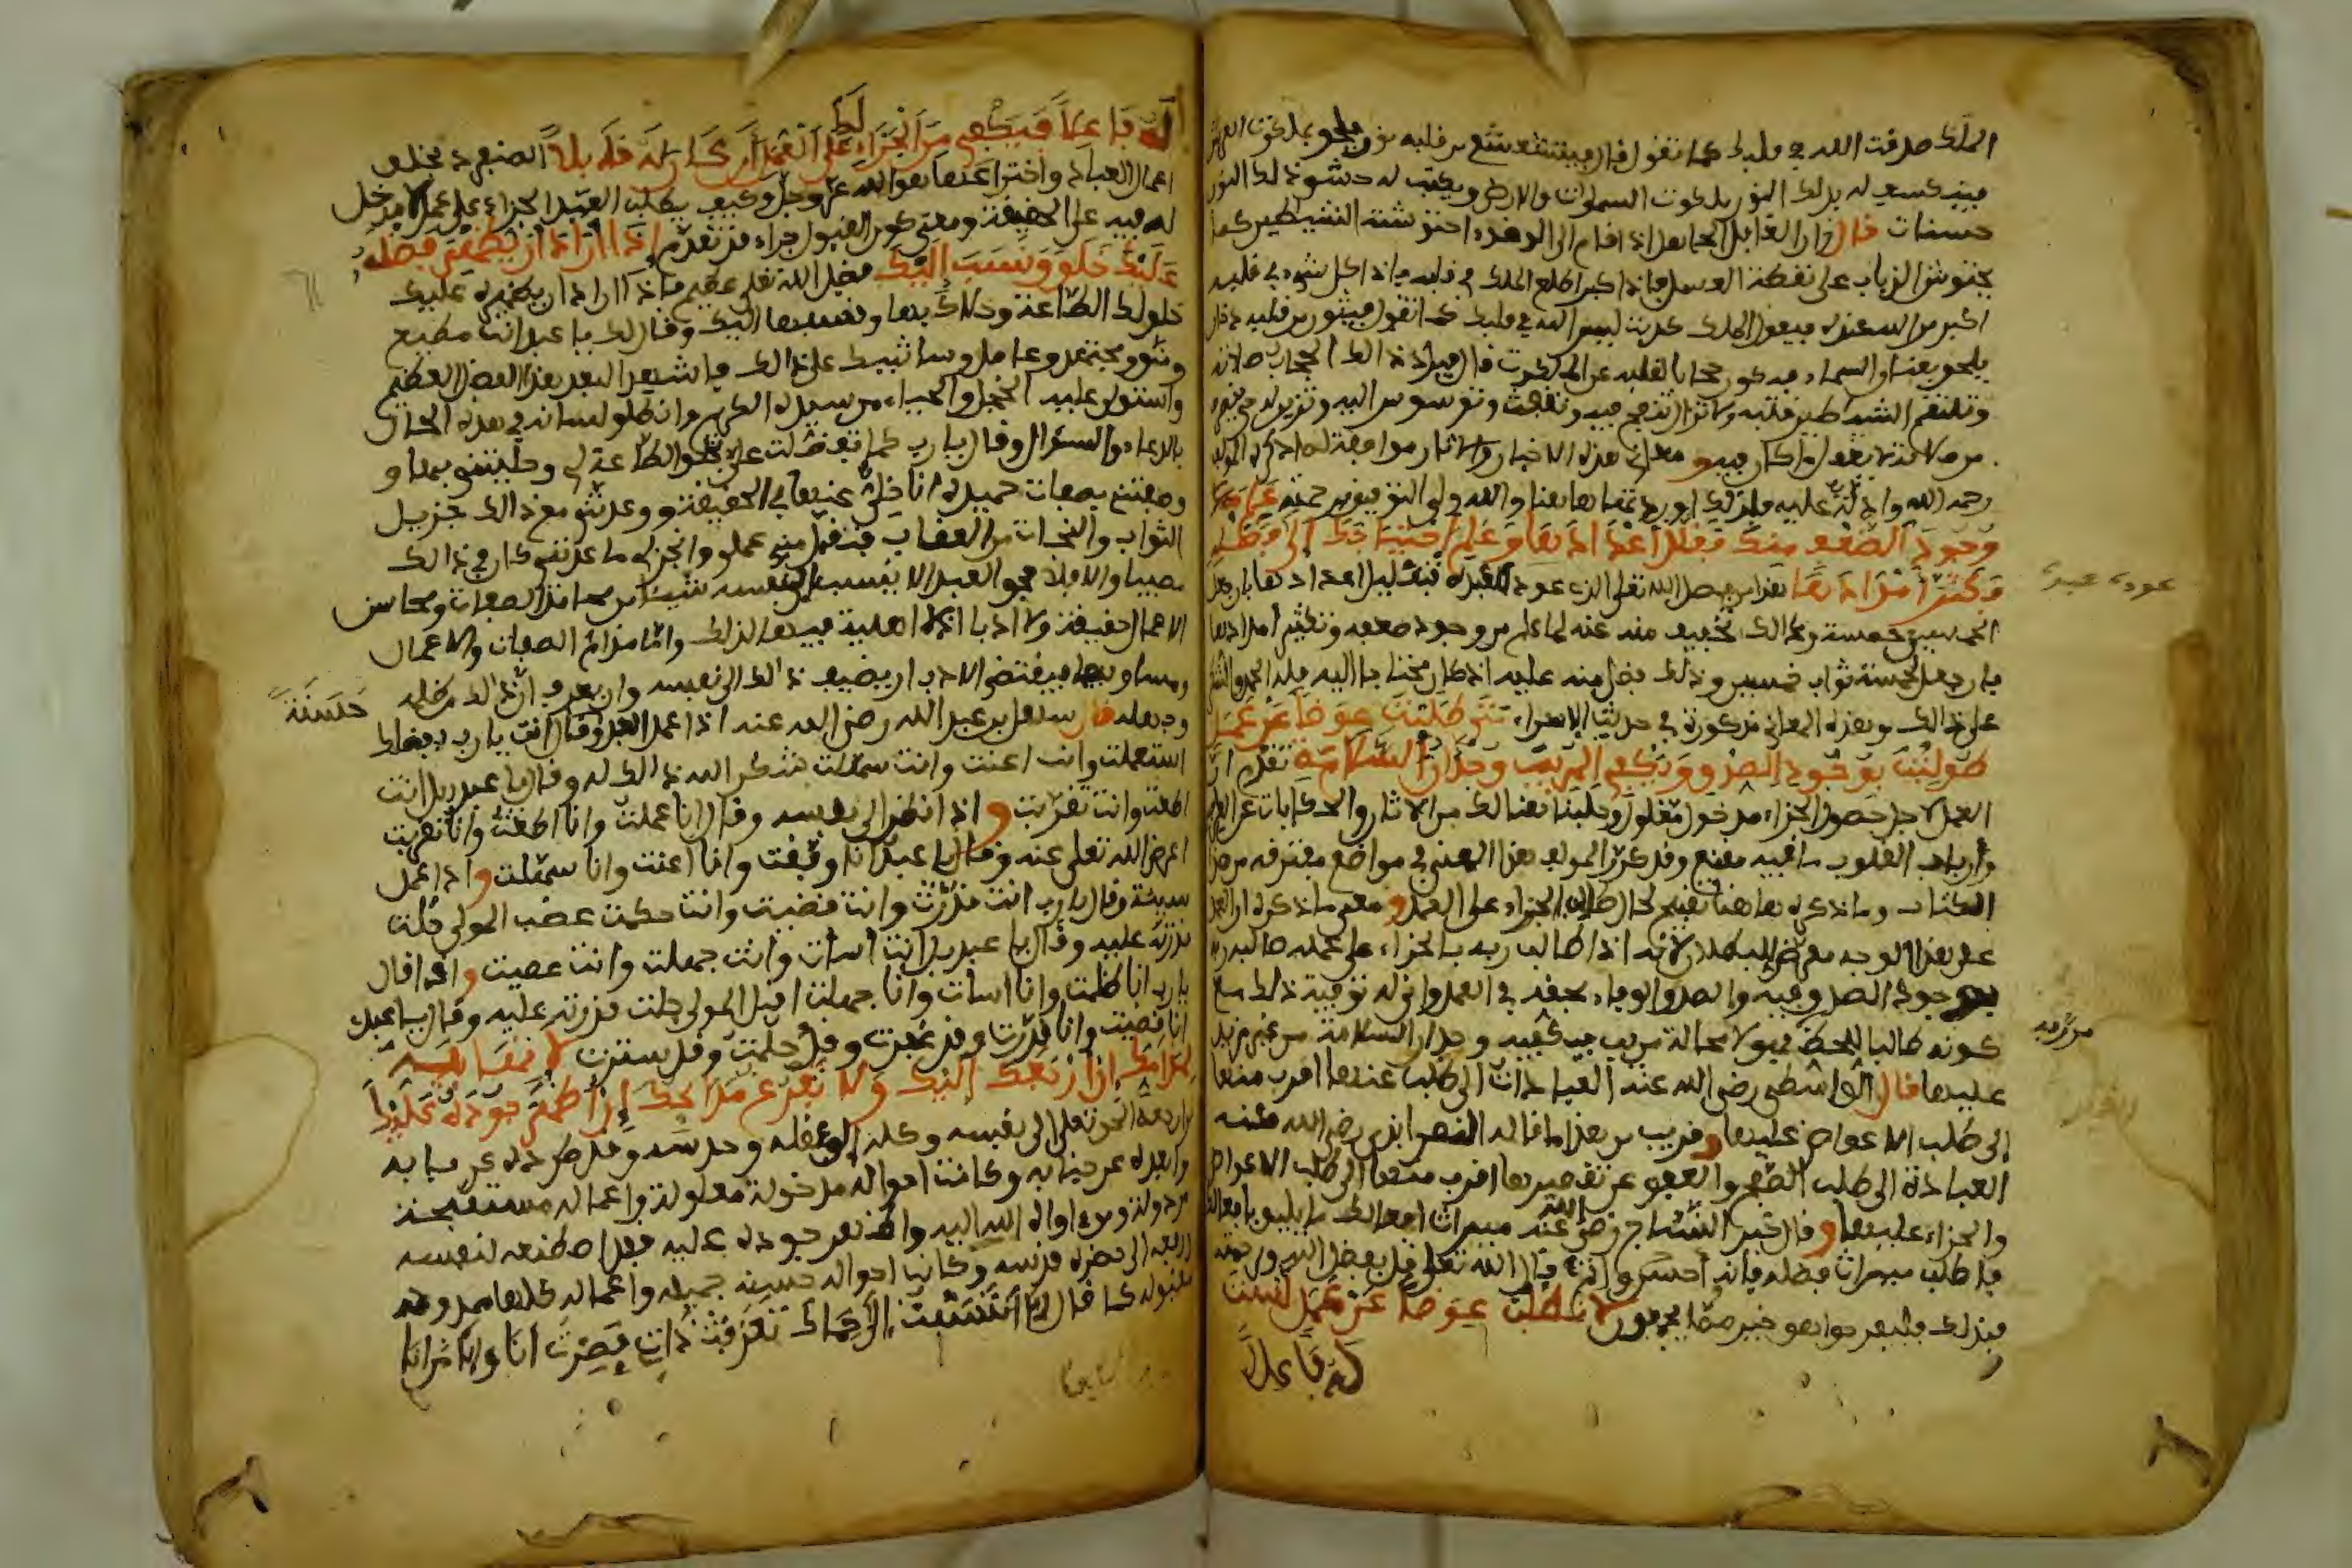 الملك صدقت الله في قلبك كما تقول قال فيتشعشع من قلبه نور يلحق بملكوت العرش
فينكسف له بذلك النور ملكوت السموات والارض ويكتب له حشو ذلك النور
حسنات قال وان الغافل الجاهل اذا قام الى الوضوء احتوشته الشيطين كما
يحتوش الذباب على نقطة العسل فاذا كبر اطلع الملك في قلبه فاذا كل شيء في قلبه
اكبر من الله عنده فيقول الملك كذبت ليس الله في قلبك كما تقول فيثور من قلبه دخان
يلحق بعنان السماء فيكون حجابا لقلبه عن الملكوت قال فيرد ذالك الحجاب صلاته
وتلتقم الشيطين قلبه ولا تزال تنفخ فيه وتنفث وتوسوس اليه وتزين له حتى ينصرف
من صلاته لا يعقل ما كان فيه ومعاني هذه الاخبار والاثار موافقة لما ذكره المولف
رحمه الله وادلة عليه فلذلك اوردتها هاهنا والله ولي التوفيق برحمته علم
وجود الضعف منك فقلل اعدادها وعلم احتياجك الى فضله
فكثر امدادها هذا من فضل الله تعلى الذي عود عبيده بتقليل اعدادها بان جعل
الخمسين خمسة وذالك تخفيف منه عنه لما علم من وجود ضعفه وتكثير امدادها
بان جعل لخمسة ثواب خمسين وذلك فضل منه عليه اذ كان محتاجا اليه فله الحمد والشكر
على ذالك وهذه المعاني مذكورة في حديث الاسراء متى طلبت عوضا عن عمل
طولبت بوجود الصدق ويكفي المريب وجدان السلامة تقدم ان
العمل لاجل حصول الجزاء مدخول معلول وجلبنا هنالك من الاثار والحكايات عن
وارباب القلوب ما فيه مقنع وقد كرر المولف هذا المعنى في مواضع مفترقة من هذا
الكتاب وما ذكره هاهنا تقبيح لحال طالب الجزاء على العمل ومعنى ما ذكره ان العمل
على هذا الوجه معرض للبطلان لانه اذا طالب ربه بالجزاء على عمله طالبه ربه
بوجود الصدق فيه والصدق والوفاء بحقه في العمل وانى له توفية ذلك مع
كونه طالبا للحظ فهو لا محالة مريب فيكفيه وجدان السلامة من غير مزيد
عليها قال الواسطي رضي الله عنه العبادات الى طلب عنها اقرب منها
الى طلب الاعواض عليها وقريب من هذا ما قاله النصراباذي رضي الله عنه
العبادة الى طلب الصفح والعفو عن تقصيرها اقرب منها الى طلب الاعواض
والجزاء عليها وقال خير النساج رضي الله عنه ميراث اعمالك ما يليق بافعالك
فاطلب ميراث فضله فانه احسن واتم قال الله تعلى قل بفضل الله وبرحمته
فبذلك فليفرحوا هو خير مما يجمعون لا تطلب عوضا عن عمل لست
له فاعلا
عوده عبيده
من ربه
له فاعلا فيكفي من الجزاء لك على العمل ان كان له قابلا الصنيع ذ بخلق
اعمال العباد واختراعها هو الله عز وجل وكيف يطلب العبد الجزاء على عمل لا مدخل
له فيه على الحقيقة ومعنى كون القبول جزاء قد تقدم اذا اراد ان يظهر فضله
عليك خلق ونسب اليك فضل الله تعلى عظيم فاذا اراد ان يظهره عليك
خلق لك الطاعة وحلاك بها ونسبها اليك وقال لك يا عبد انت مطيع
ومتق ومجتهد وعامل وساثيبك على ذالك فاذا شهد العبد هذا الفضل العظيم
واستولى عليه الخجل والحياء من سيده الكريم وانطلق لسانه في هذه الحال
بالدعاء والسؤال وقال يا رب كما تفضلت علي بخلق الطاعة لي وحليتني بها و
وصفتني بصفات حميدة انا خلي عنها في الحقيقة ووعدتني مع ذالك جزيل
الثواب والنجات من العقاب فتقبل مني عملي وانجز لي ما وعدتني كان في ذالك
مصيبا والا فلا فحق العبد الا ينسب الى نفسه شيئا من محامد الصفات ومحاسن
الاعمال حقيقة ولا ادبا اذ لا اهلية فيها لذلك واما مذام الصفات والاعمال
ومساويها فيقتضي الادب ان يضيف ذالك الى نفسه وان يعرف ان ذالك من ظلمه
وجهله قال سهل بن عبد الله رضي الله عنه اذا عمل العبد حسنة وقال انت يا رب بفضلك
استعملت وانت اعنت وانت سهلت شكر الله ذالك له وقال يا عبدي بل انت
اطعت وانت تقربت واذا نظر الى نفسه وقال انا عملت وانا اطعت وانا تقربت
اعرض الله تعلى عنه وقال يا عبد انا وفقت وانا اعنت وانا سهلت واذا عمل
سيئة وقال يا رب انت قدرت وانت قضيت وانت حكمت غضب المولى جلت
قدرته عليه وقال يا عبدي بل انت اسات وانت جهلت وانت عصيت واذا قال
يا رب انا ظلمت وانا اسات وانا جهلت اقبل المولى جلت قدرته عليه وقال يا عبد
انا قضيت وانا قدرت وقد غفرت وقد حلمت وقد سترت لا نهاية
لمذامك ان ارجعك اليك ولا تفرغ مدائحك ان اظهر جوده عليك
من ارجعه الحق تعلى الى نفسه وكله الى عقله وحدسه وقد طرده عن بابه
وابعده عن جنابه وكانت احواله مدخولة معلولة واعماله مستقبحة
مرذولة ومن اواه الله اليه واظهر جوده عليه فقد اصطنعه لنفسه
ورفعه الى حضرة قدسه وكانت احواله حسنة جميلة واعماله كلها
مقبولة كما قال
حسنة